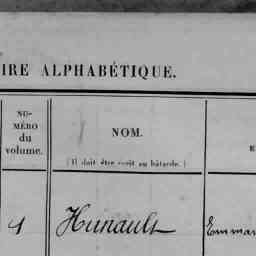 IRE ALPHABÉTIQUE.
NO-
MÉRO
du
volume.
NOM.
(Il doit être écrit en bâtarde.)
1 Hunault